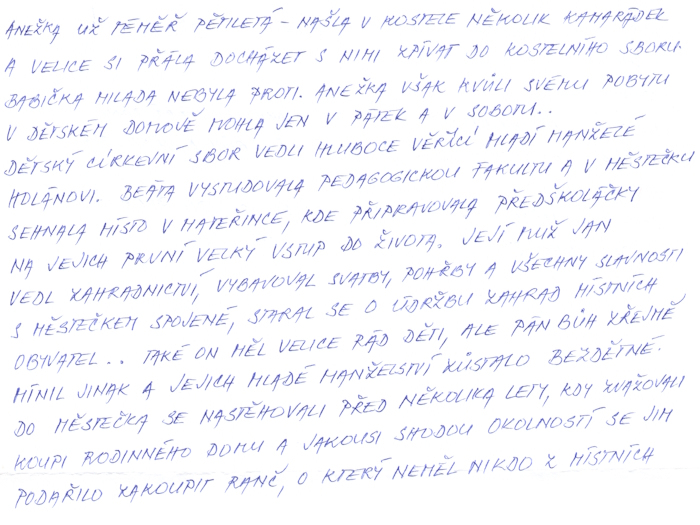 ANEŽKA UŽ TÉMĚŘ PĚTILETÁ - NAŠLA V KOSTELE NĚKOLIK KAMARÁDEK
A VELICE SI PŘÁLA DOCHÁZET S NIMI ZPÍVAT DO KOSTELNÍHO SBORU.
BABIČKA MILADA NEBYLA PROTI. ANEŽKA VŠAK KVŮLI SVÉMU POBYTU
V DĚTSKÉM DOMOVĚ MOHLA JEN V PÁTEK A V SOBOTU..
DĚTSKÝ CÍRKEVNÍ SBOR VEDLI HLUBOCE VĚŘÍCÍ MLADÍ MANŽELÉ
HOLÁNOVI. BEÁTA VYSTUDOVALA PEDAGOGICKOU FAKULTU A V MĚSTEČKU
SEHNALA MÍSTO V MATEŘINCE, KDE PŘIPRAVOVALA PŘEDŠKOLÁČKY
NA JEJICH PRVNÍ VELKÝ VSTUP DO ŽIVOTA. JEJÍ MUŽ JAN
VEDL ZAHRADNICTVÍ, VYBAVOVAL SVATBY, POHŘBY A VŠECHNY SLAVNOSTI
S MĚSTEČKEM SPOJENÉ, STARAL SE O ÚDRŽBU ZAHRAD MÍSTNÍCH
OBYVATEL.. TAKÉ ON MĚL VELICE RÁD DĚTI, ALE PÁN BŮH ZŘEJMĚ
MÍNIL JINAK A JEJICH MLADÉ MANŽELSTVÍ ZŮSTALO BEZDĚTNÉ.
DO MĚSTEČKA SE NASTĚHOVALI PŘED NĚKOLIKA LETY, KDY ZVAŽOVALI
KOUPI RODINNÉHO DOMU A JAKOUSI SHODOU OKOLNOSTÍ SE JIM
PODAŘILO ZAKOUPIT RANČ, O KTERÝ NEMĚL NIKDO Z MÍSTNÍCH